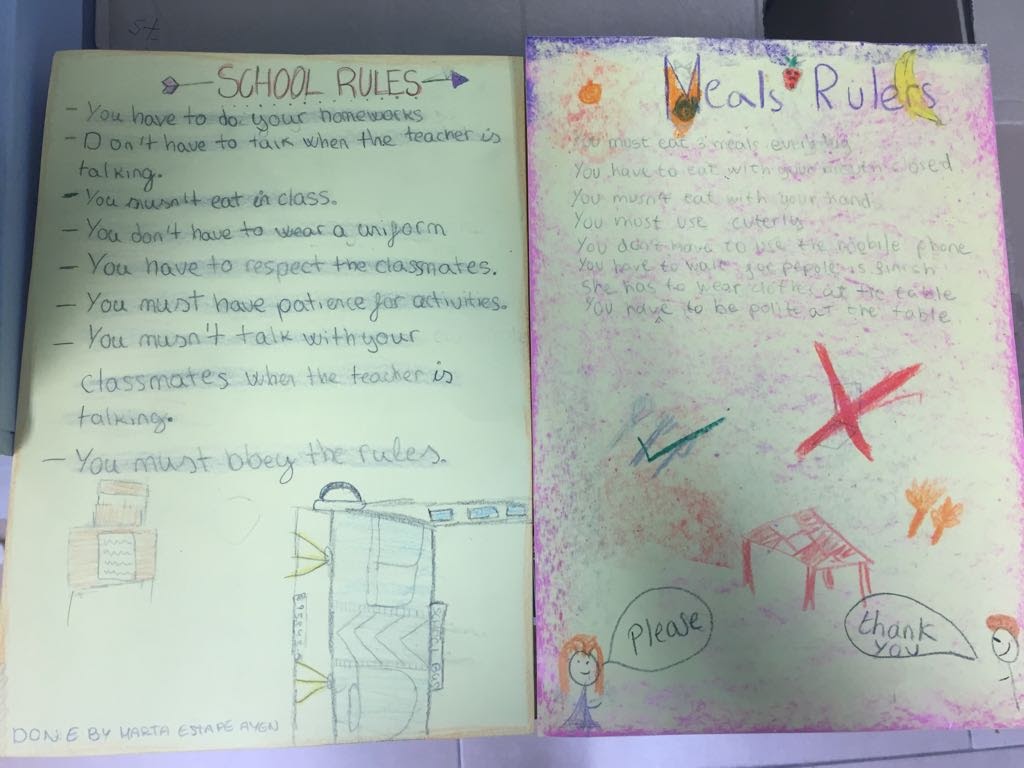 SCHOOL RULES
- You have to do your homeworks
- Don't have to talk when the teacher is
talking.
- You musn't eat in class.
- You don't have to wear a uniform
- You have to respect the classmates.
- You must have patience for activities.
- You musn't talk with your
classmates when the teacher is
talking.
- You must obey the rules.
SCHOOL BUS
DONE BY MARTA ESTAPE AYEN
Meals Rulers
You must eat 3 meals every
You have to eat with your mouth closed
You musn't eat with your hand
You must use cuterly
You don't have to use the mobile phone
You have to wait for pepole is finish
She has to wear clothes at the table
You have to be polite at the table
please
thank
you